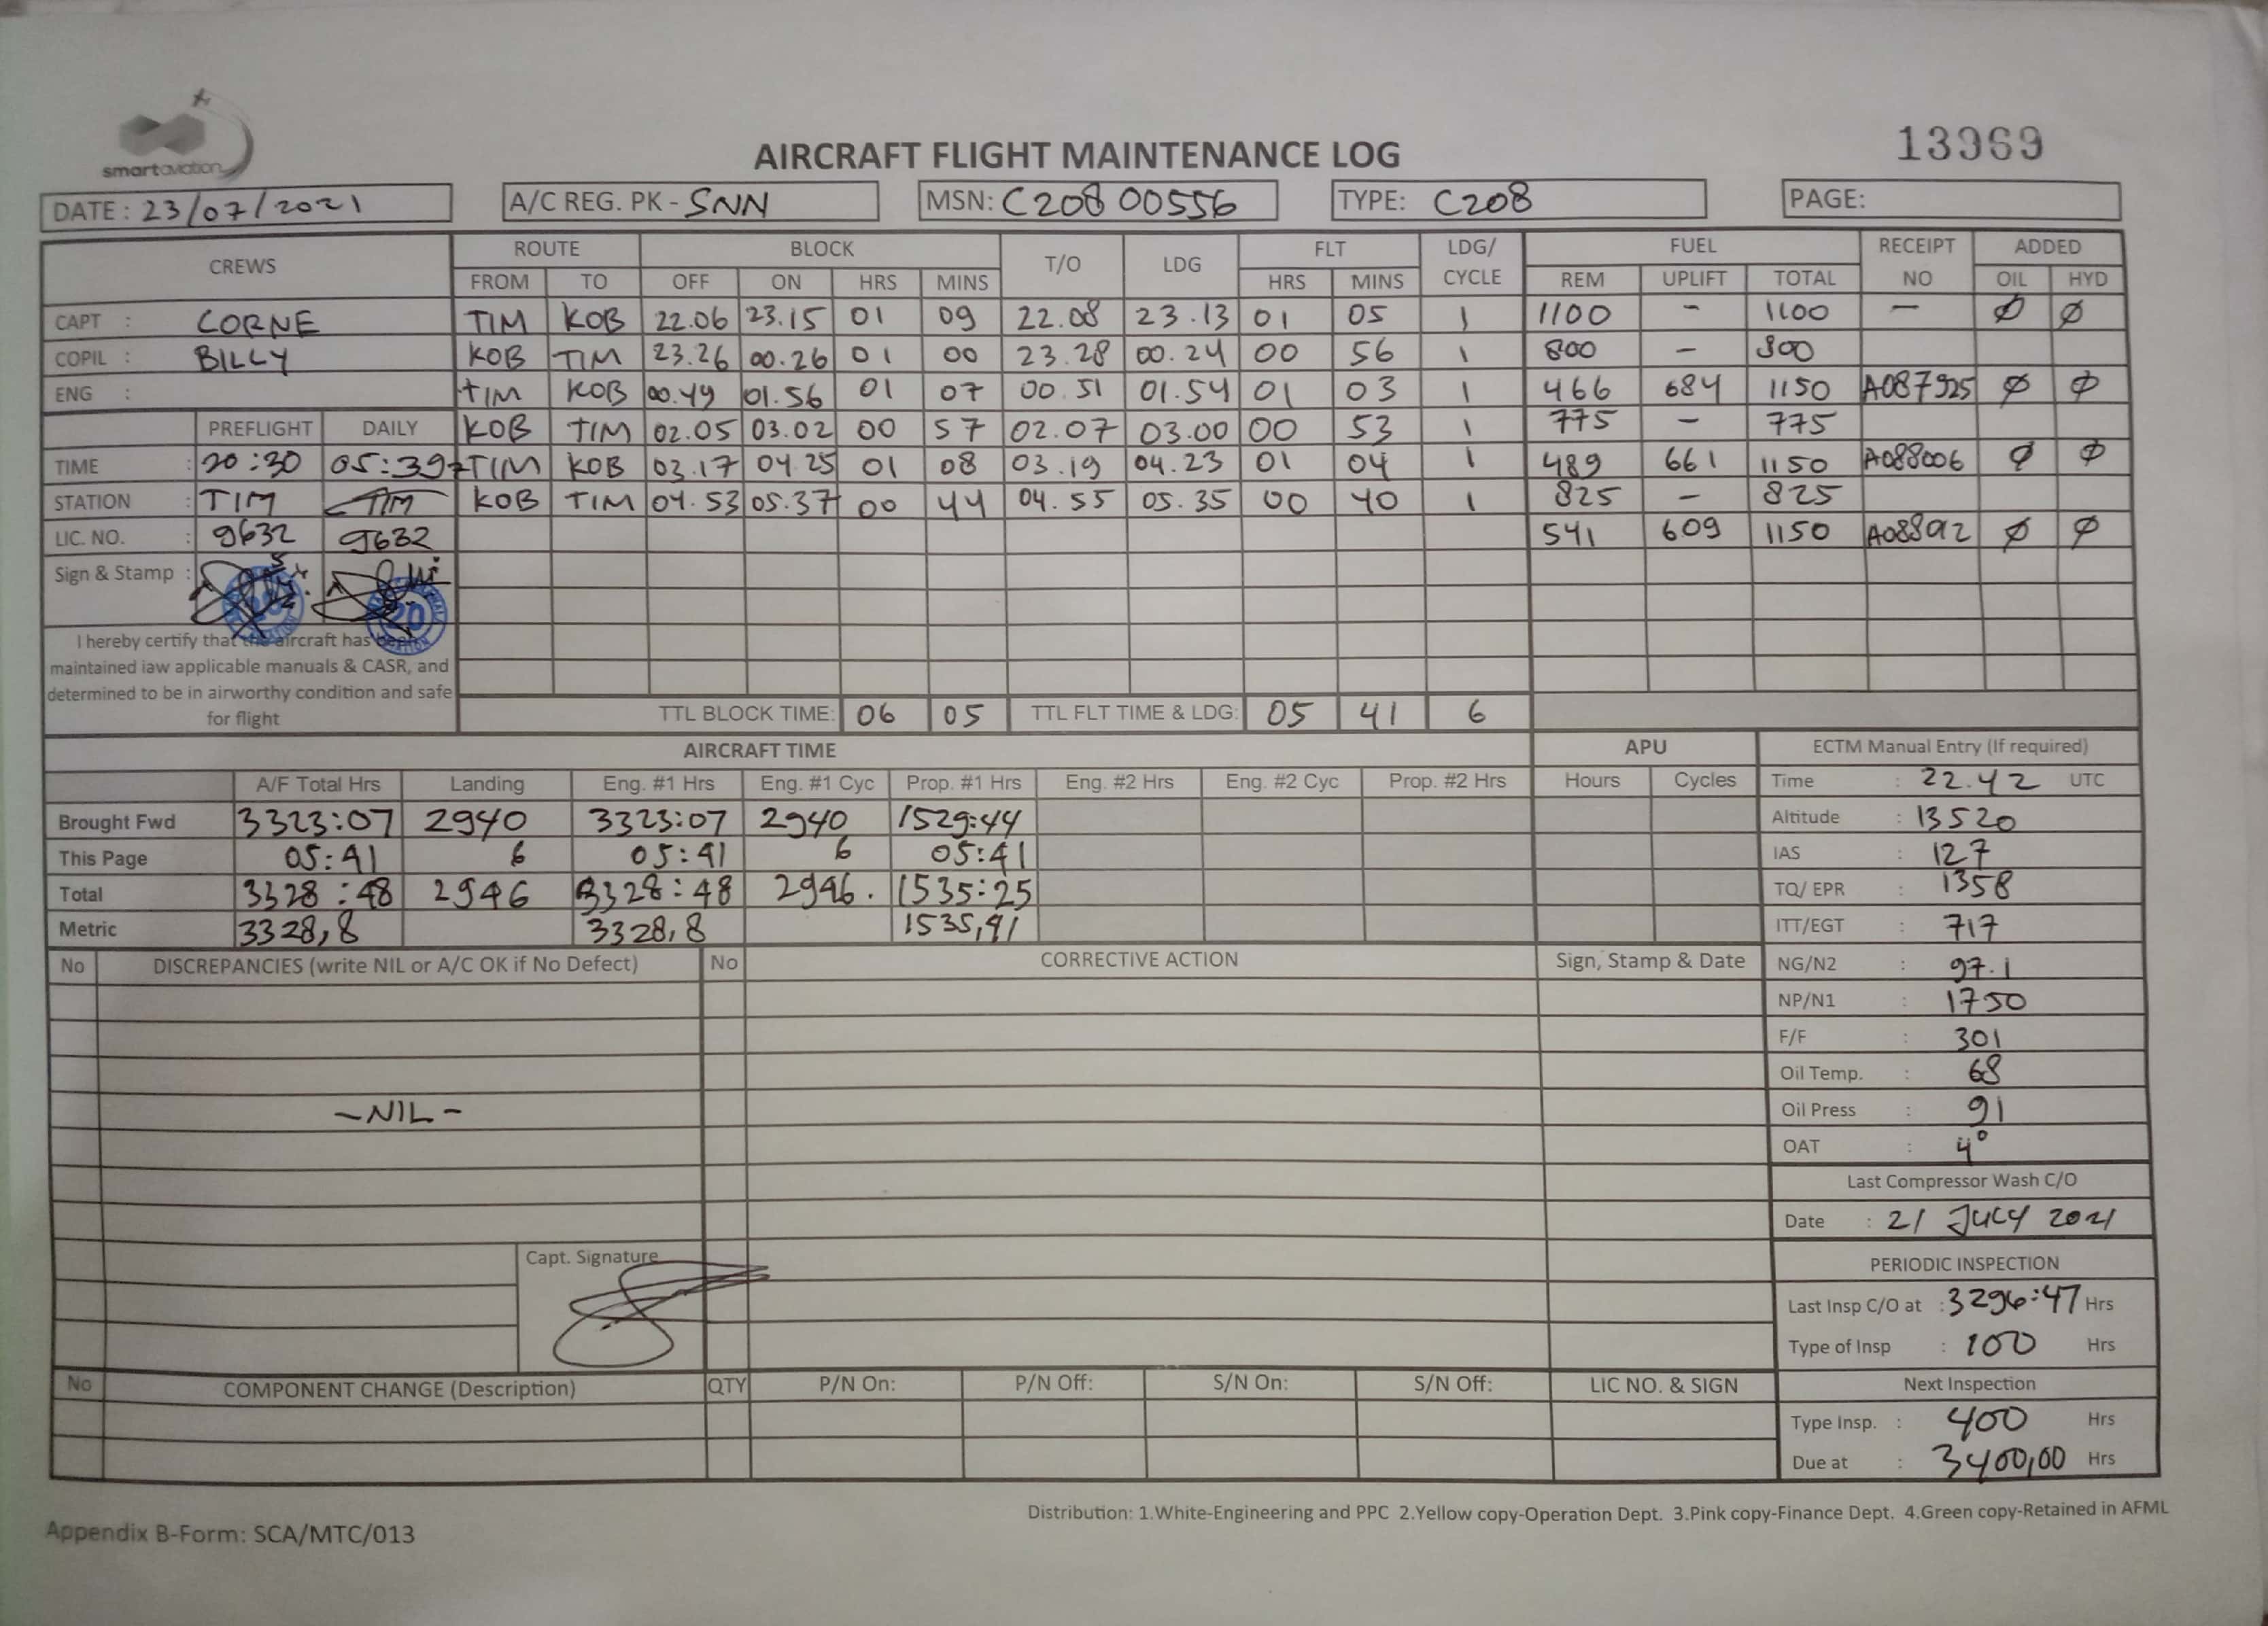 smartaviation
AIRCRAFT FLIGHT MAINTENANCE LOG
13969
DATE : 23/07/2021 A/C REG. PK - SNN MSN: C208 00556 TYPE: C208 PAGE:
CREWS ROUTE BLOCK T/O LDG FLT LDG/ CYCLE FUEL RECEIPT NO ADDED
FROM TO OFF ON HRS MINS HRS MINS REM UPLIFT TOTAL OIL HYD
CAPT : CORNE TIM KOB 22.06 23.15 01 09 22.08 23.13 01 05 1 1100 - 1100 - Ø Ø
COPIL : BILLY KOB TIM 23.26 00.26 01 00 23.28 00.24 00 56 1 800 - 800
ENG : TIM KOB 00.49 01.56 01 07 00.51 01.54 01 03 1 466 684 1150 A087925 Ø Ø
PREFLIGHT DAILY KOB TIM 02.05 03.02 00 57 02.07 03.00 00 53 1 775 - 775
TIME : 20:30 05:39 TIM KOB 03.17 04.25 01 08 03.19 04.23 01 04 1 489 661 1150 A088006 Ø Ø
STATION : TIM TIM KOB TIM 04.53 05.37 00 44 04.55 05.35 00 40 1 825 - 825
LIC. NO. : 9632 9632 541 609 1150 Ø Ø
Sign & Stamp :
20
I hereby certify that the aircraft has been
maintained iaw applicable manuals & CASR, and
determined to be in airworthy condition and safe
for flight
TTL BLOCK TIME: 06 05 TTL FLT TIME & LDG: 05 41 6
AIRCRAFT TIME APU ECTM Manual Entry (If required)
A/F Total Hrs Landing Eng. #1 Hrs Eng. #1 Cyc Prop. #1 Hrs Eng. #2 Hrs Eng. #2 Cyc Prop. #2 Hrs Hours Cycles Time : 22.42 UTC
Brought Fwd 3323:07 2940 3323:07 2940 1529:44 Altitude : 13520
This Page 05:41 6 05:41 6 05:41 IAS : 127
Total 3328:48 2946 3328:48 2946. 1535:25 TQ/ EPR : 1358
Metric 3328,8 3328,8 1535,41 ITT/EGT : 717
No DISCREPANCIES (write NIL or A/C OK if No Defect) No CORRECTIVE ACTION Sign, Stamp & Date NG/N2 : 97.1
NP/N1 : 1750
F/F : 301
Oil Temp. : 68
- NIL - Oil Press : 91
OAT : 4°
Last Compressor Wash C/O
Date : 21 JULY 2021
Capt. Signature
PERIODIC INSPECTION
Last Insp C/O at : 3296:47 Hrs
Type of Insp : 100 Hrs
No COMPONENT CHANGE (Description) QTY P/N On: P/N Off: S/N On: S/N Off: LIC NO. & SIGN Next Inspection
Type Insp. : 400 Hrs
Due at : 3400,00 Hrs
Distribution: 1.White-Engineering and PPC 2.Yellow copy-Operation Dept. 3.Pink copy-Finance Dept. 4.Green copy-Retained in AFML
Appendix B-Form: SCA/MTC/013